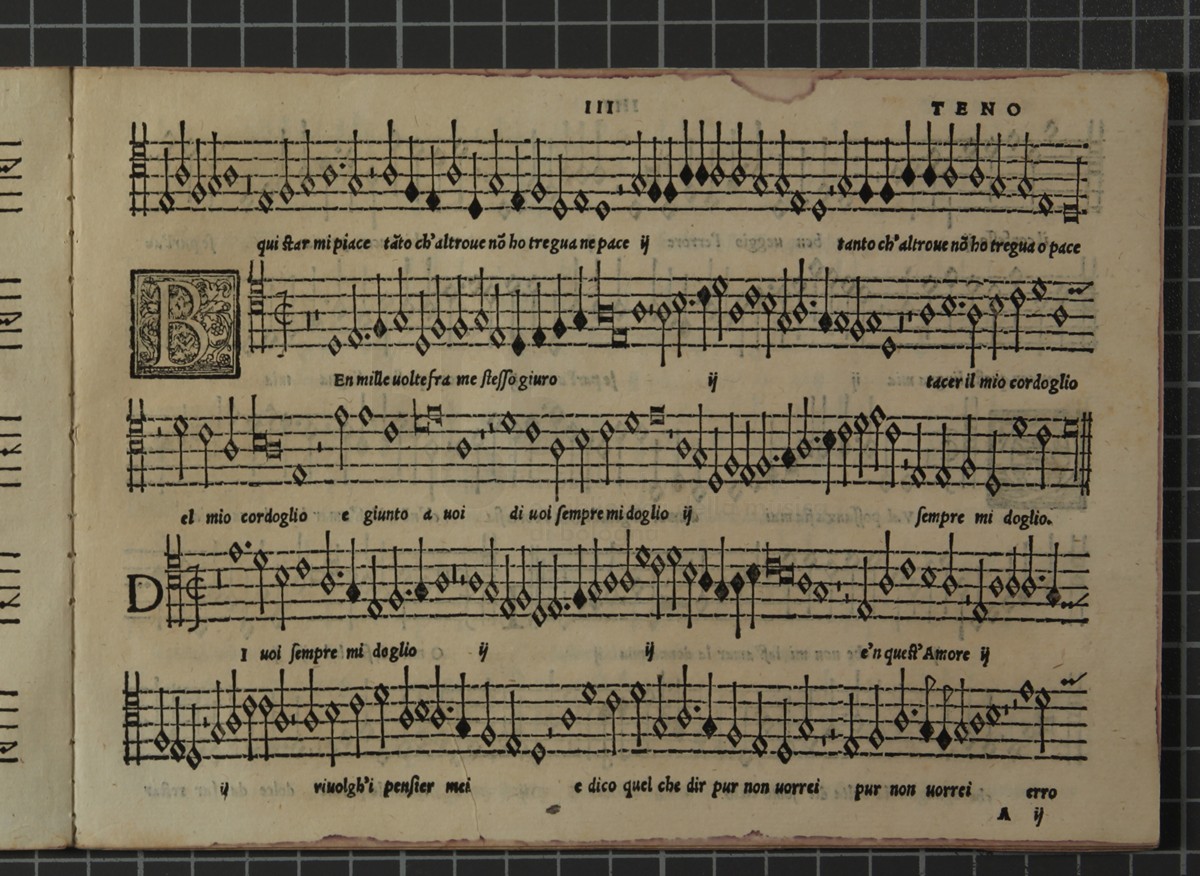 III TENO
qui ſtar mi piace tãto ch'altroue nõ ho tregua ne pace ij tanto ch'altroue nõ ho tregua o pace
B
En mille uolte fra me ſteſſo giuro ij tacer il mio cordoglio
el mio cordoglio e giunto a uoi di uoi ſempre mi doglio ij ſempre mi doglio.
D
I uoi ſempre mi doglio ij ij e'n queſt'Amore ij
ij riuolgh'i penſier mei e dico quel che dir pur non uorrei pur non uorrei erro
A ij